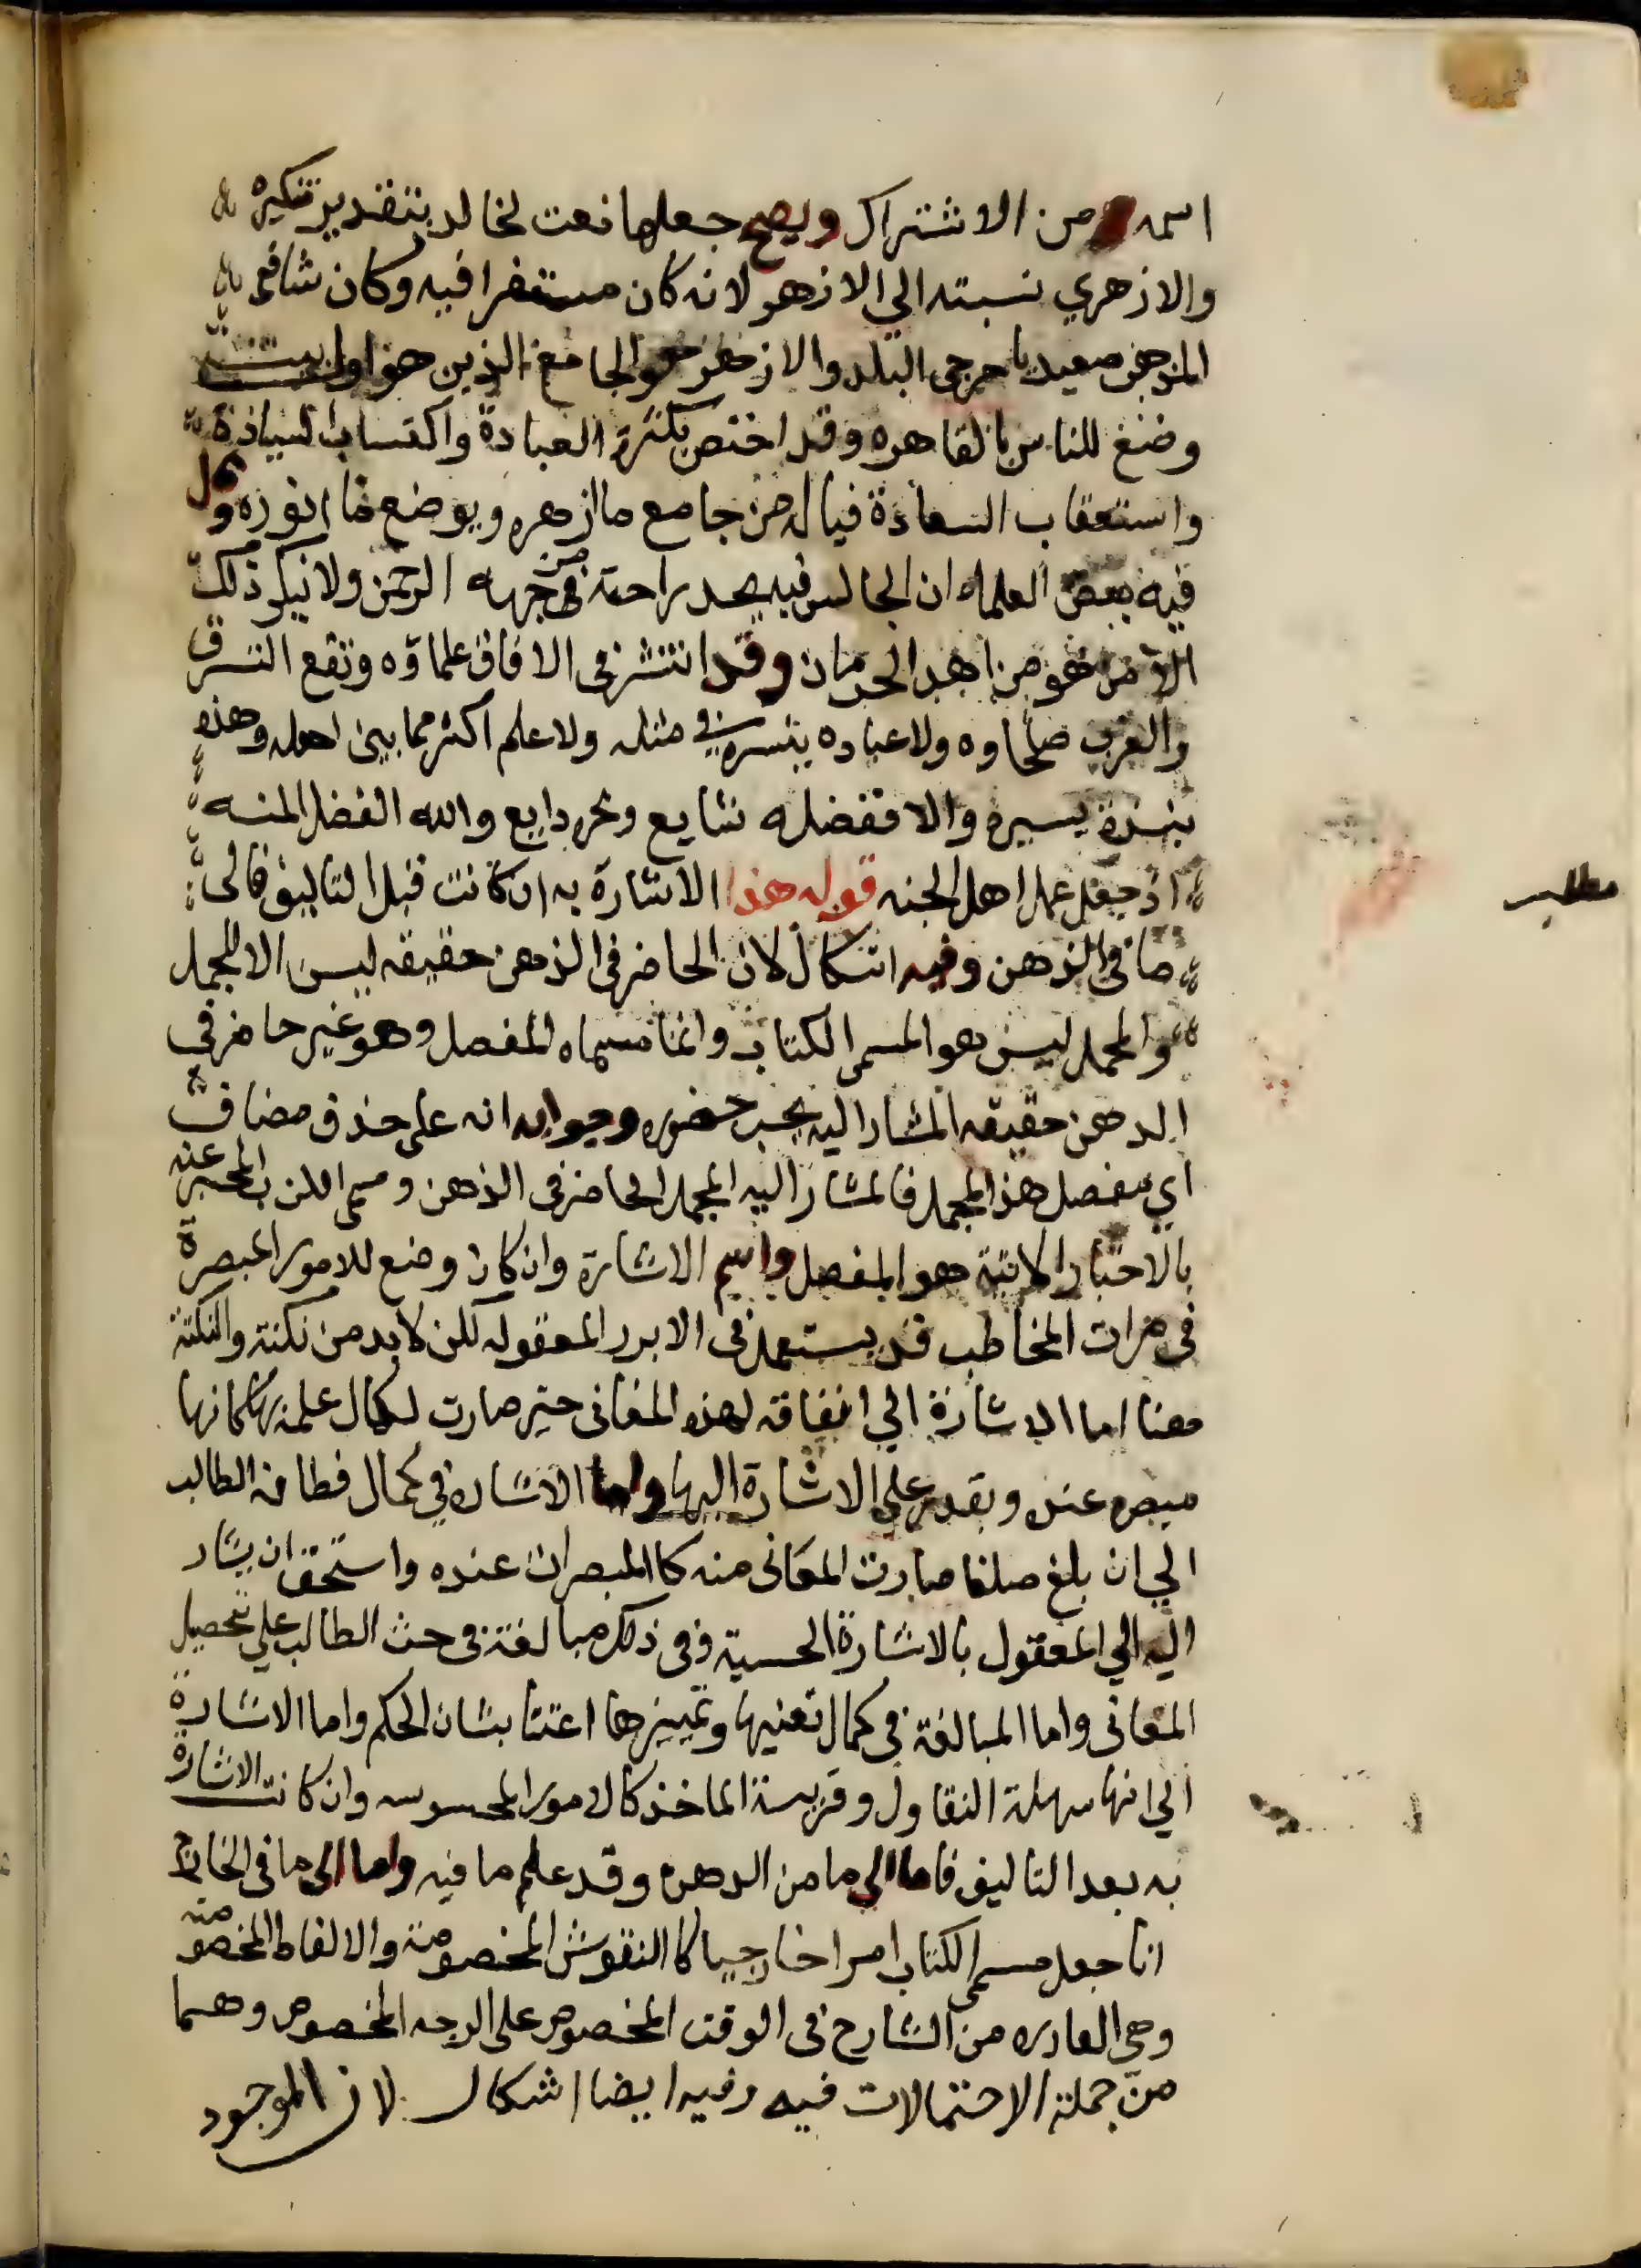 اسمه من الاشتراك ويصح جعلها نعت لخالد بتقدير تنكيره
والازهري نسبته الي الازهر لانه كان مستقرا فيه وكان شافعي
المذهب صعيديا جرجي البلد والازهر هو الجامع الذي هو اول بيت
وضع للناس بالقاهره وقد اختص بكثرة العبادة واكتساب السيادة
واستعقاب السعادة فياله من جامع ما ازهره وبوضع ما انوره وقال
فيه بعض العلماء ان الجالس فيه يجد راحة من جهه الرحمن ولا ينكر ذلك
الا من هو من اهل الحرمان وقد انتشر في الافاق علماؤه ونفع الشرق
والغرب صلحاوه ولا عباده بتيسر في مثله ولا علم اكثر مما بين اهله وهذه
نبذة يسيرة والا ففضله شايع وبحره دايع والله الفضل المنه
اذ جعل عمل اهل الجنه قوله هذا الاشارة به ان كانت قبل التاليف فالى
ما في الذهن وفيه اشكال لان الحاضر في الذهن حقيقه ليس الا المجمل
والمجمل ليس هو المسمى الكتاب وانما مسماه المفصل وهو غير حاضر في
الدهن حقيقه المشار اليه يجب حضوره وجوابه انه على حذف مضاف
اي مفصل هذا المجمل فالمشار اليه المجمل الحاضر في الذهن ومسمى الكتاب المخبر عنه
بالاخبار الاتية هو المفصل واسم الاشارة وان كان وضع للامور المبصرة
في مرات المخاطب قد يستعمل في الامور المعقوله لكن لا بد من نكتة والنكتة
هنا اما الاشارة الي اتفاقه لهذه المعاني حتى صارت لكمال علمه بها كانها
مبصره عنده ويقدر على الاشارة اليها واما الاشاره في كمال فطانه الطالب
الي ان بلغ مبلغا صارت المعاني منه كالمبصرات عنده واستحق ان يشار
اليه الي المعقول بالاشارة الحسية وفي ذلك مبالغة في حث الطالب على تحصيل
المعاني واما المبالغة في كمال تعنيها وتمييزها اعتنا بشان الحكم واما الاشارة
الي انها سهلة التقاول وقريبة الماخذ كالامور المحسوسه وان كانت الاشارة
به بعد التاليف فاما الي ما من الدهن وقد علم ما فيه واما الى ما في الخارج
انا جعل مسمى الكتاب امرا خارجيا كالنقوش المخصوصة والالفاظ المخصوصة
وهي الصادره من الشارح في الوقت المخصوص على الوجه المخصوص وهما
من جملة الاحتمالات فيه وفيه ايضا اشكال لان الموجود
مطلب